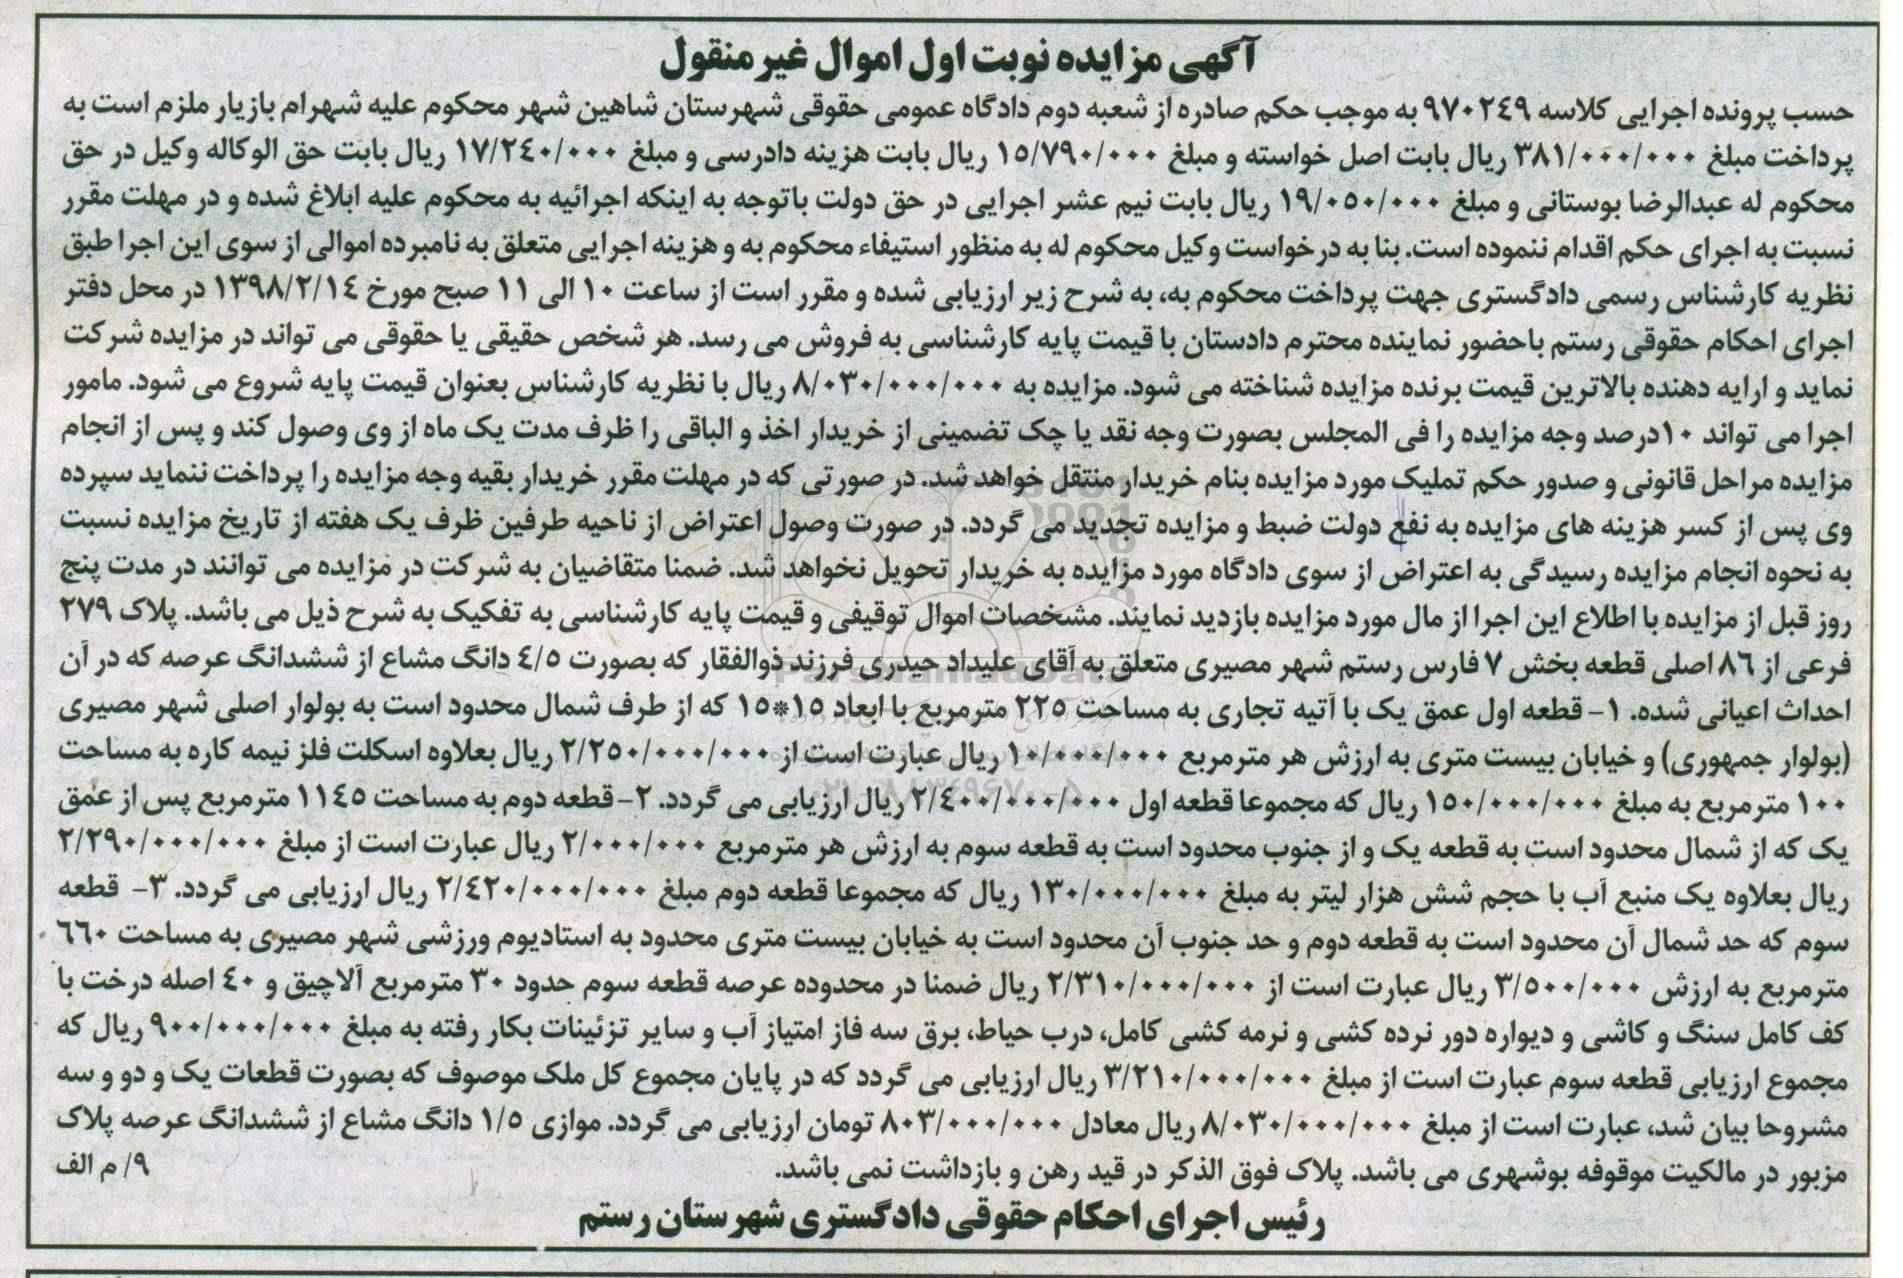 آگهی مزایده نوبت اول اموال غیر منقول
حسب پرونده اجرایی کلاسه ۹۷۰۲٤۹ به موجب حکم صادره از شعبه دوم دادگاه عمومی حقوقی شهرستان شاهین شهر محکوم علیه شهرام بازیار ملزم است به
پرداخت مبلغ ۳۸۱/۰۰۰/۰۰۰ ریال بابت اصل خواسته و مبلغ ۱۵/۷۹۰/۰۰۰ ریال بابت هزینه دادرسی و مبلغ ۱۷/۲٤۰/۰۰۰ ریال بابت حق الوکاله وکیل در حق
محکوم له عبدالرضا بوستانی و مبلغ ۱۹/۰۵۰/۰۰۰ ریال بابت نیم عشر اجرایی در حق دولت باتوجه به اینکه اجرائیه به محکوم علیه ابلاغ شده و در مهلت مقرر
نسبت به اجرای حکم اقدام ننموده است. بنا به درخواست وکیل محکوم له به منظور استیفاء محکوم به و هزینه اجرایی متعلق به نامبرده اموالی از سوی این اجرا طبق
نظریه کارشناس رسمی دادگستری جهت پرداخت محکوم به، به شرح زیر ارزیابی شده و مقرر است از ساعت ۱۰ الی ۱۱ صبح مورخ ۱۳۹۸/۲/۱٤ در محل دفتر
اجرای احکام حقوقی رستم باحضور نماینده محترم دادستان با قیمت پایه کارشناسی به فروش می رسد. هر شخص حقیقی یا حقوقی می تواند در مزایده شرکت
نماید و ارایه دهنده بالاترین قیمت برنده مزایده شناخته می شود. مزایده به ۸/۰۳۰/۰۰۰/۰۰۰ ریال با نظریه کارشناس بعنوان قیمت پایه شروع می شود. مامور
اجرا می تواند ۱۰درصد وجه مزایده را فی المجلس بصورت وجه نقد یا چک تضمینی از خریدار اخذ و الباقی را ظرف مدت یک ماه از وی وصول کند و پس از انجام
مزایده مراحل قانونی و صدور حکم تملیک مورد مزایده بنام خریدار منتقل خواهد شد. در صورتی که در مهلت مقرر خریدار بقیه وجه مزایده را پرداخت ننماید سپرده
وی پس از کسر هزینه های مزایده به نفع دولت ضبط و مزایده تجدید می گردد. در صورت وصول اعتراض از ناحیه طرفین ظرف یک هفته از تاریخ مزایده نسبت
به نحوه انجام مزایده رسیدگی به اعتراض از سوی دادگاه مورد مزایده به خریدار تحویل نخواهد شد. ضمنا متقاضیان به شرکت در مزایده می توانند در مدت پنج
روز قبل از مزایده با اطلاع این اجرا از مال مورد مزایده بازدید نمایند. مشخصات اموال توقیفی و قیمت پایه کارشناسی به تفکیک به شرح ذیل می باشد. پلاک ۲۷۹
فرعی از ۸٦ اصلی قطعه بخش ۷ فارس رستم شهر مصیری متعلق به آقای علیداد حیدری فرزند ذوالفقار که بصورت ٤/۵ دانگ مشاع از ششدانگ عرصه که در آن
احداث اعیانی شده. ۱- قطعه اول عمق یک با آتیه تجاری به مساحت ۲۲۵ مترمربع با ابعاد ۱۵*۱۵ که از طرف شمال محدود است به بولوار اصلی شهر مصیری
(بولوار جمهوری) و خیابان بیست متری به ارزش هر مترمربع ۱۰/۰۰۰/۰۰۰ ریال عبارت است از ۲/۲۵۰/۰۰۰/۰۰۰ ریال بعلاوه اسکلت فلز نیمه کاره به مساحت
۱۰۰ مترمربع به مبلغ ۱۵۰/۰۰۰/۰۰۰ ریال که مجموعا قطعه اول ۲/٤۰۰/۰۰۰/۰۰۰ ریال ارزیابی می گردد. ۲- قطعه دوم به مساحت ۱۱٤۵ مترمربع پس از عمق
یک که از شمال محدود است به قطعه یک و از جنوب محدود است به قطعه سوم به ارزش هر مترمربع ۲/۰۰۰/۰۰۰ ریال عبارت است از مبلغ ۲/۲۹۰/۰۰۰/۰۰۰
ریال بعلاوه یک منبع آب با حجم شش هزار لیتر به مبلغ ۱۳۰/۰۰۰/۰۰۰ ریال که مجموعا قطعه دوم مبلغ ۲/٤۲۰/۰۰۰/۰۰۰ ریال ارزیابی می گردد. ۳- قطعه
سوم که حد شمال آن محدود است به قطعه دوم و حد جنوب آن محدود است به خیابان بیست متری محدود به استادیوم ورزشی شهر مصیری به مساحت ٦٦۰
مترمربع به ارزش ۳/۵۰۰/۰۰۰ ریال عبارت است از ۲/۳۱۰/۰۰۰/۰۰۰ ریال ضمنا در محدوده عرصه قطعه سوم حدود ۳۰ مترمربع آلاچیق و ٤۰ اصله درخت با
کف کامل سنگ و کاشی و دیواره دور نرده کشی و نرمه کشی کامل، درب حیاط، برق سه فاز امتیاز آب و سایر تزئینات بکار رفته به مبلغ ۹۰۰/۰۰۰/۰۰۰ ریال که
مجموع ارزیابی قطعه سوم عبارت است از مبلغ ۳/۲۱۰/۰۰۰/۰۰۰ ریال ارزیابی می گردد که در پایان مجموع کل ملک موصوف که بصورت قطعات یک و دو و سه
مشروحا بیان شد، عبارت است از مبلغ ۸/۰۳۰/۰۰۰/۰۰۰ ریال معادل ۸۰۳/۰۰۰/۰۰۰ تومان ارزیابی می گردد. موازی ۱/۵ دانگ مشاع از ششدانگ عرصه پلاک
مزبور در مالکیت موقوفه بوشهری می باشد. پلاک فوق الذکر در قید رهن و بازداشت نمی باشد. ۹/ م الف
رئیس اجرای احکام حقوقی دادگستری شهرستان رستم